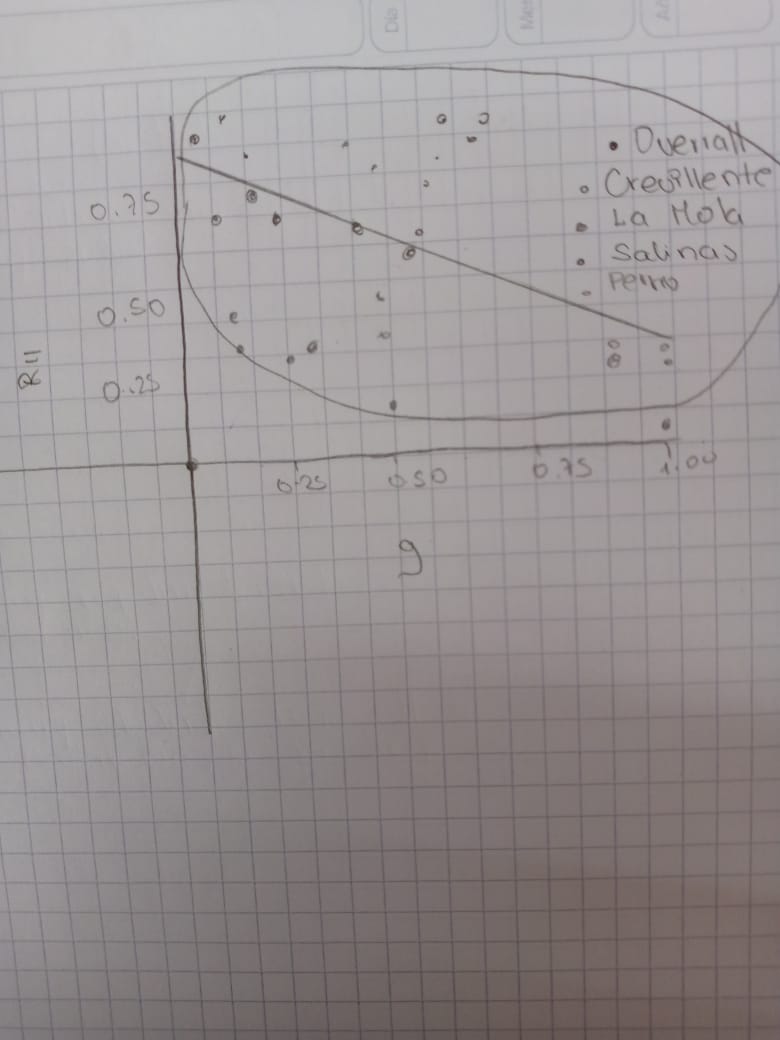 Día
• Overrall
Crevillente
La Mola
Salinas
Perro
0.75
0.50
0.25
RII
0.25 0.50 0.75 1.00
g